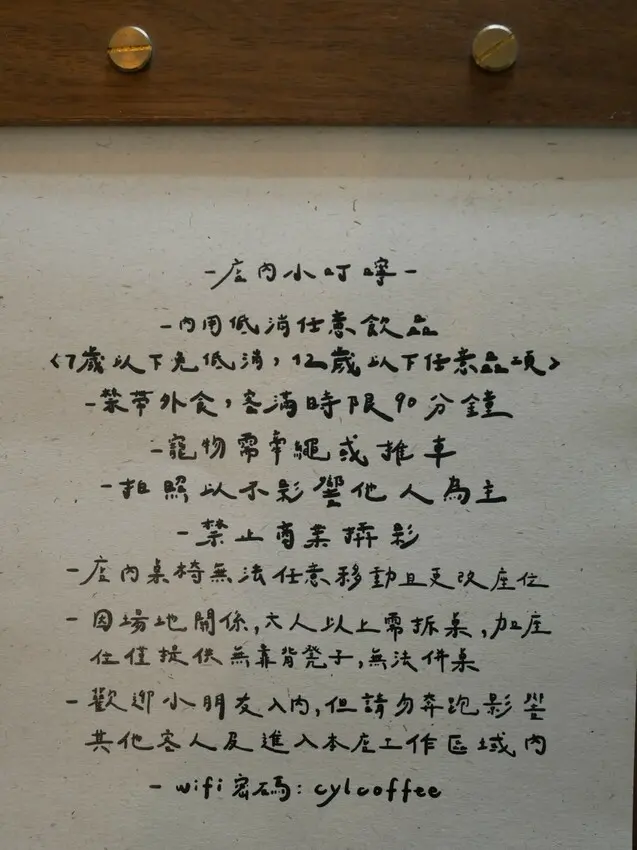 -店內小叮嚀-
-內用低消任意飲品
<7歲以下免低消,12歲以下任意品項>
-禁帶外食,客滿時限90分鐘
-寵物需牽繩或推車
-拍照以不影響他人為主
-禁止商業攝影
-店內桌椅無法任意移動且更改座位
-因場地關係,六人以上需拆桌,加座
位僅提供無靠背凳子,無法併桌
-歡迎小朋友入內,但請勿奔跑影響
其他客人及進入本店工作區域內
-wifi密碼:cylcoffee